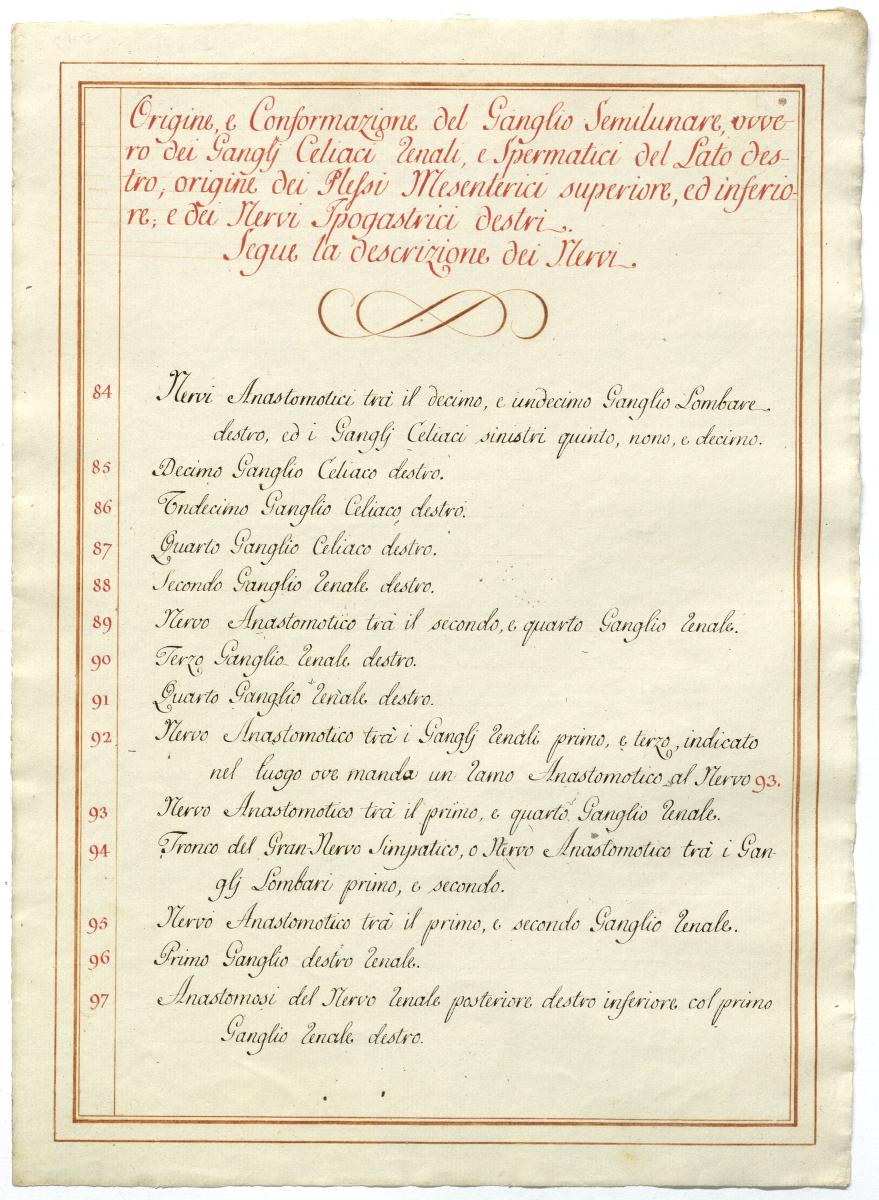 Origine, e Conformazione del Ganglio Semilunare, ovve-
ro dei Ganglj Celiaci Renali, e Spermatici del Lato des-
tro, origine dei Plessi Mesenterici superiore, ed inferio-
re; e dei Nervi Ipogastrici destri.
Segue la descrizione dei Nervi
84 Nervi Anastomotici trà il decimo, e undecimo Ganglio Lombare
destro, ed i Ganglj Celiaci sinistri quinto, nono, e decimo.
85 Decimo Ganglio Celiaco destro.
86 Undecimo Ganglio Celiaco destro.
87 Quarto Ganglio Celiaco destro.
88 Secondo Ganglio Renale destro.
89 Nervo Anastomotico trà il secondo, e quarto Ganglio Renale.
90 Terzo Ganglio Renale destro.
91 Quarto Ganglio Renale destro.
92 Nervo Anastomotico trà i Ganglj Renali primo, e terzo, indicato
nel luogo ove manda un ramo Anastomotico al Nervo 93.
93 Nervo Anastomotico trà il primo, e quarto Ganglio Renale.
94 Tronco del Gran-Nervo Simpatico, o Nervo Anastomotico trà i Gan-
glj Lombari primo, e secondo.
95 Nervo Anastomotico trà il primo, e secondo Ganglio Renale.
96 Primo Ganglio destro Renale.
97 Anastomosi del Nervo Renale posteriore destro inferiore col primo
Ganglio Renale destro.